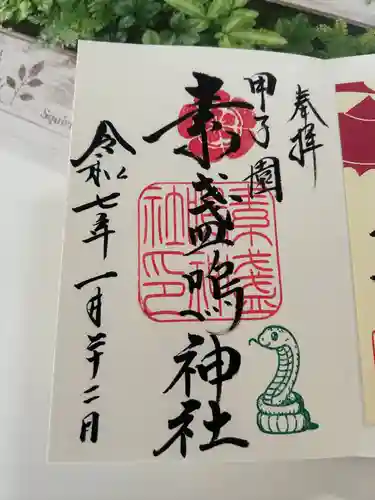 奉拝
甲子園
素盞嗚神社
令和七年一月二十二日
素盞嗚神社印